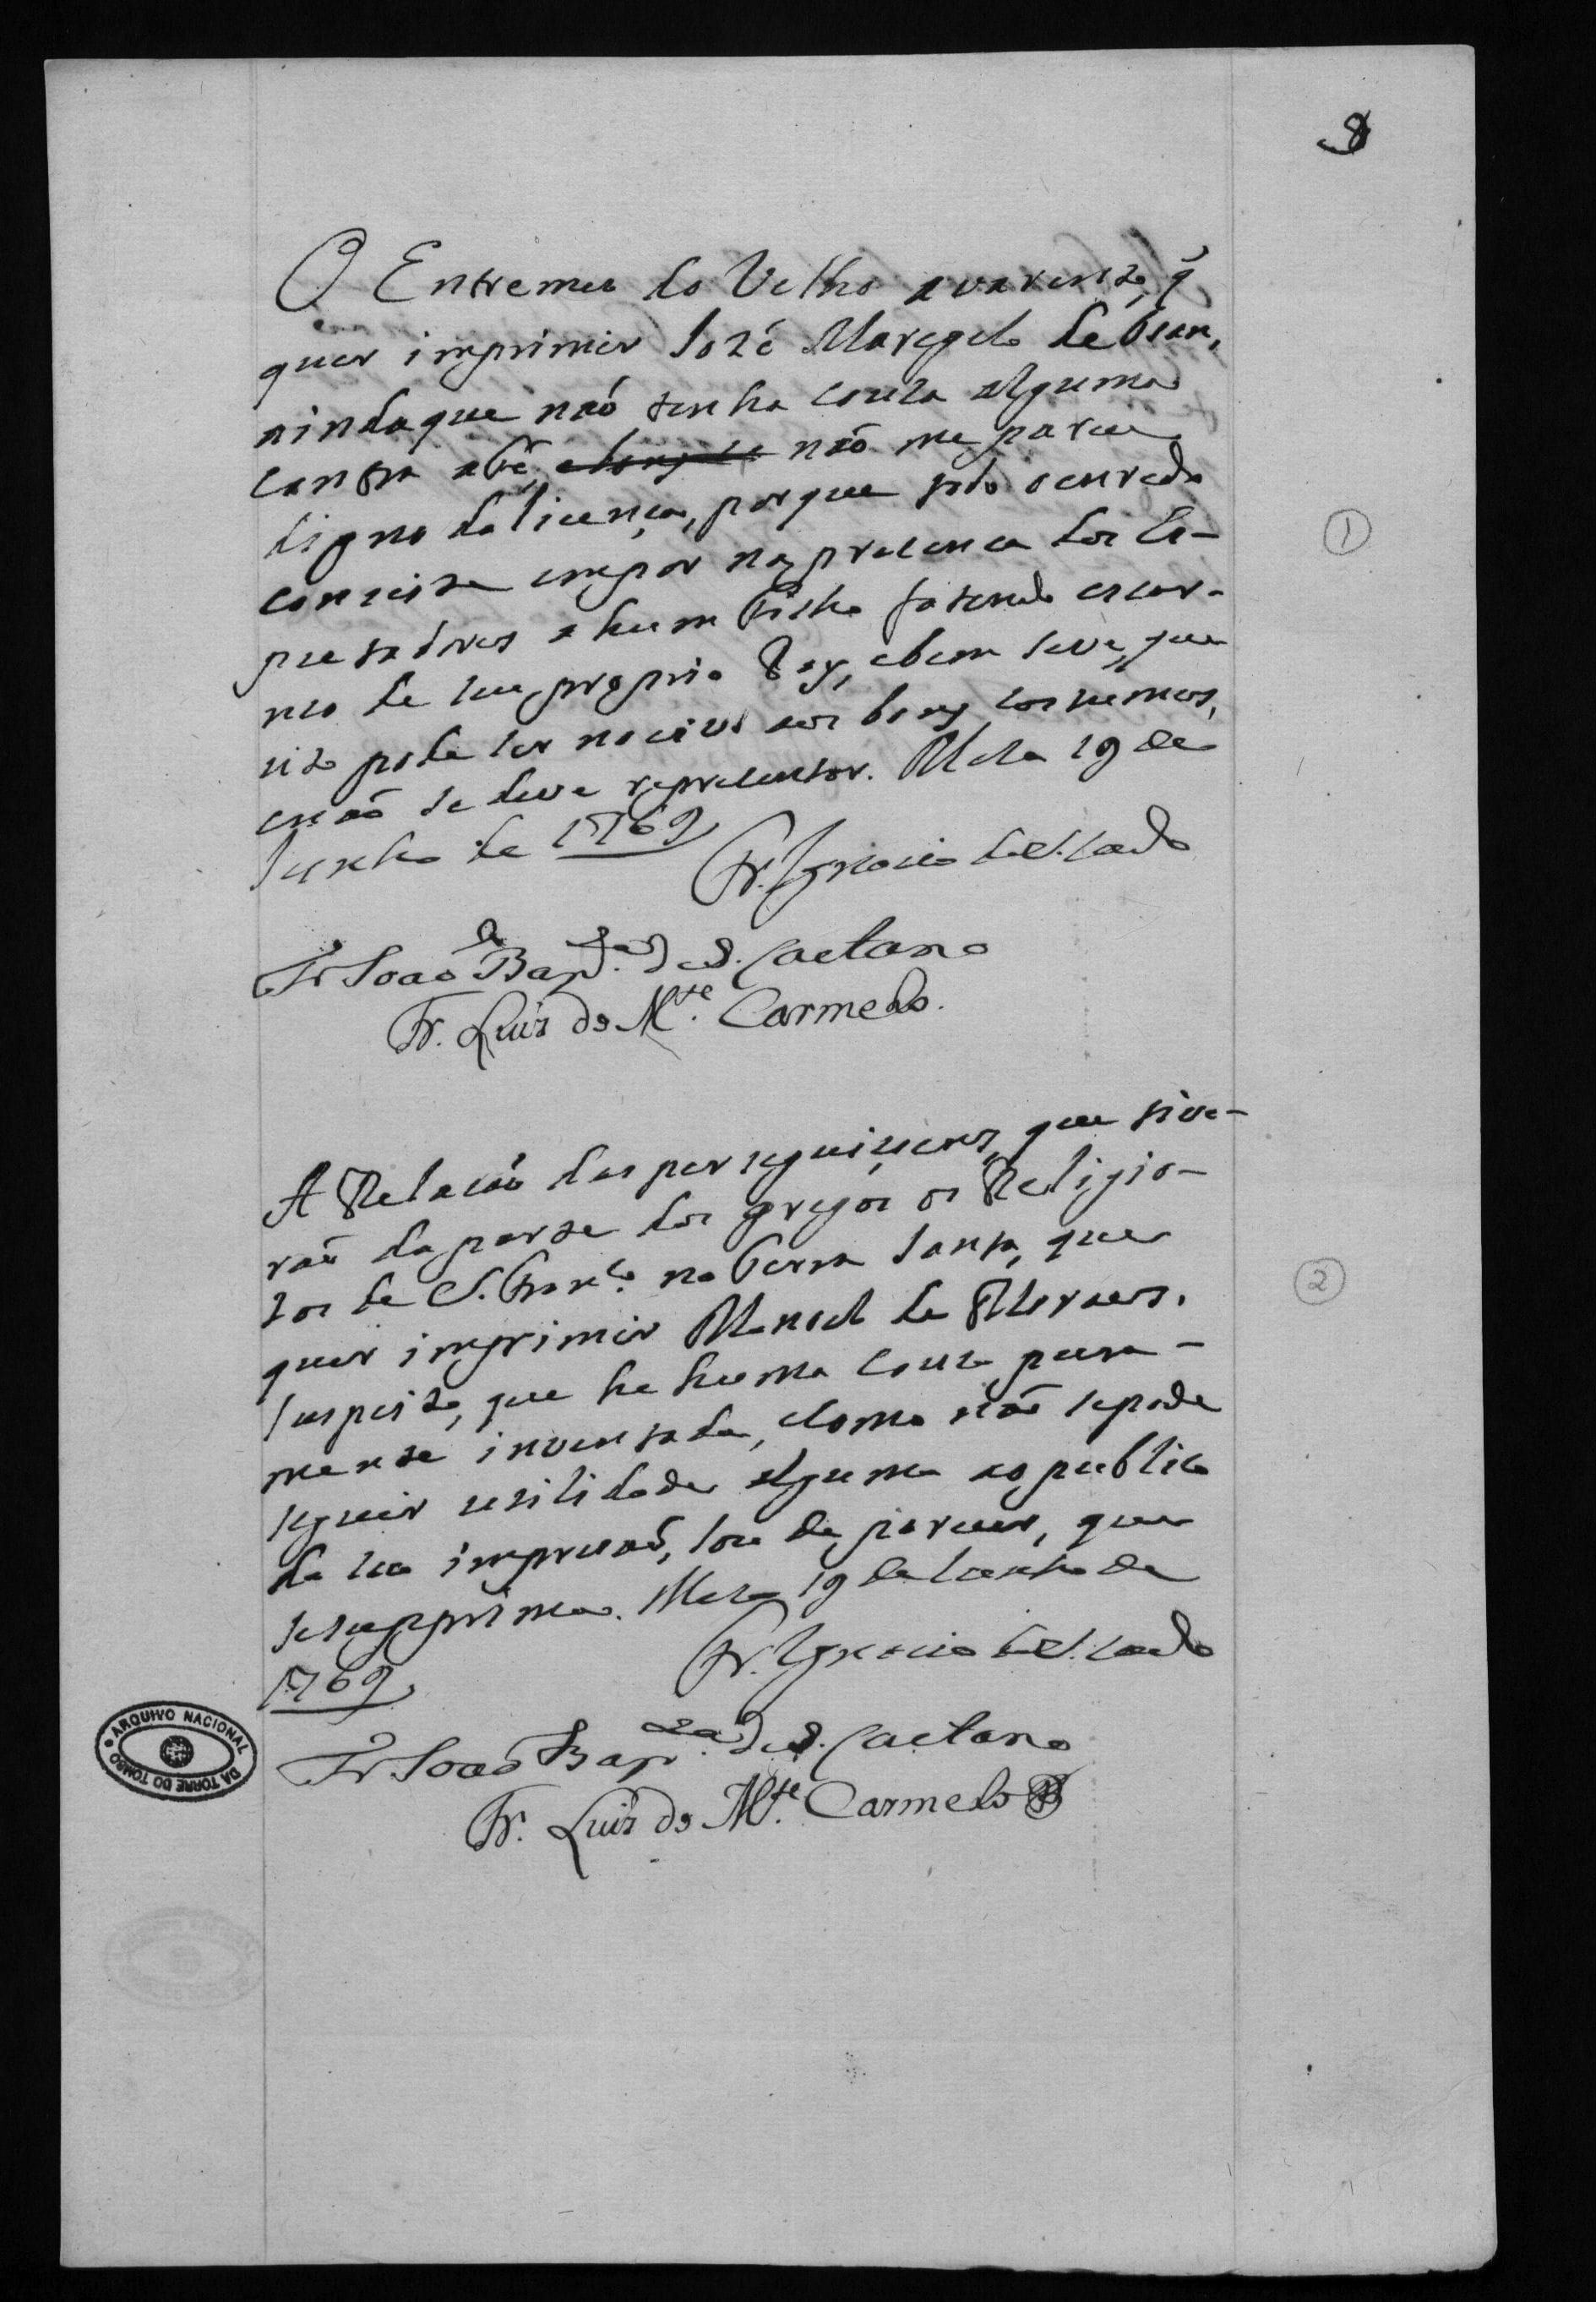 8
O Entremes do Velho avarento, q̃
quer imprimir Jozé Maregelo de Osan,
ainda que naõ tenha couza alguma
contra a fé, não me parece
digno da licença, porque todo o enredo
consiste em por na prezença dos Es-
pectadores a hum filho fazendo escar-
neo de seu proprio Pay, e bem se ve, que
isto pode ser nocivo aos bons costumes,
e naõ se deve reprezentar. Meza 19 de
Junho de 1769
Fr. Ignacio de S. Caetº
Fr Joaõ Bapta. de S. Caetano
Fr. Luis do Mte. Carmelo.
1
A Relaçaõ das perseguiçoens, que tive-
raõ da parte dos gregos os Religio-
zos de S. Franco. na Terra Santa, que
quer imprimir Manoel de Moraes.
Suspeito, que he huma couza pura-
mente inventada, e como não se pode
seguir utilidade alguma ao publico
da sua impressaõ, sou de parecer, que
se supprima. Meza 19 de Junho de
1769
Fr. Ignacio de S. Caetº
Fr Joaõ Bapta. de S. Caetano
Fr. Luis do Mte. Carmelo
2
ARQUIVO NACIONAL
DA TORRE DO TOMBO